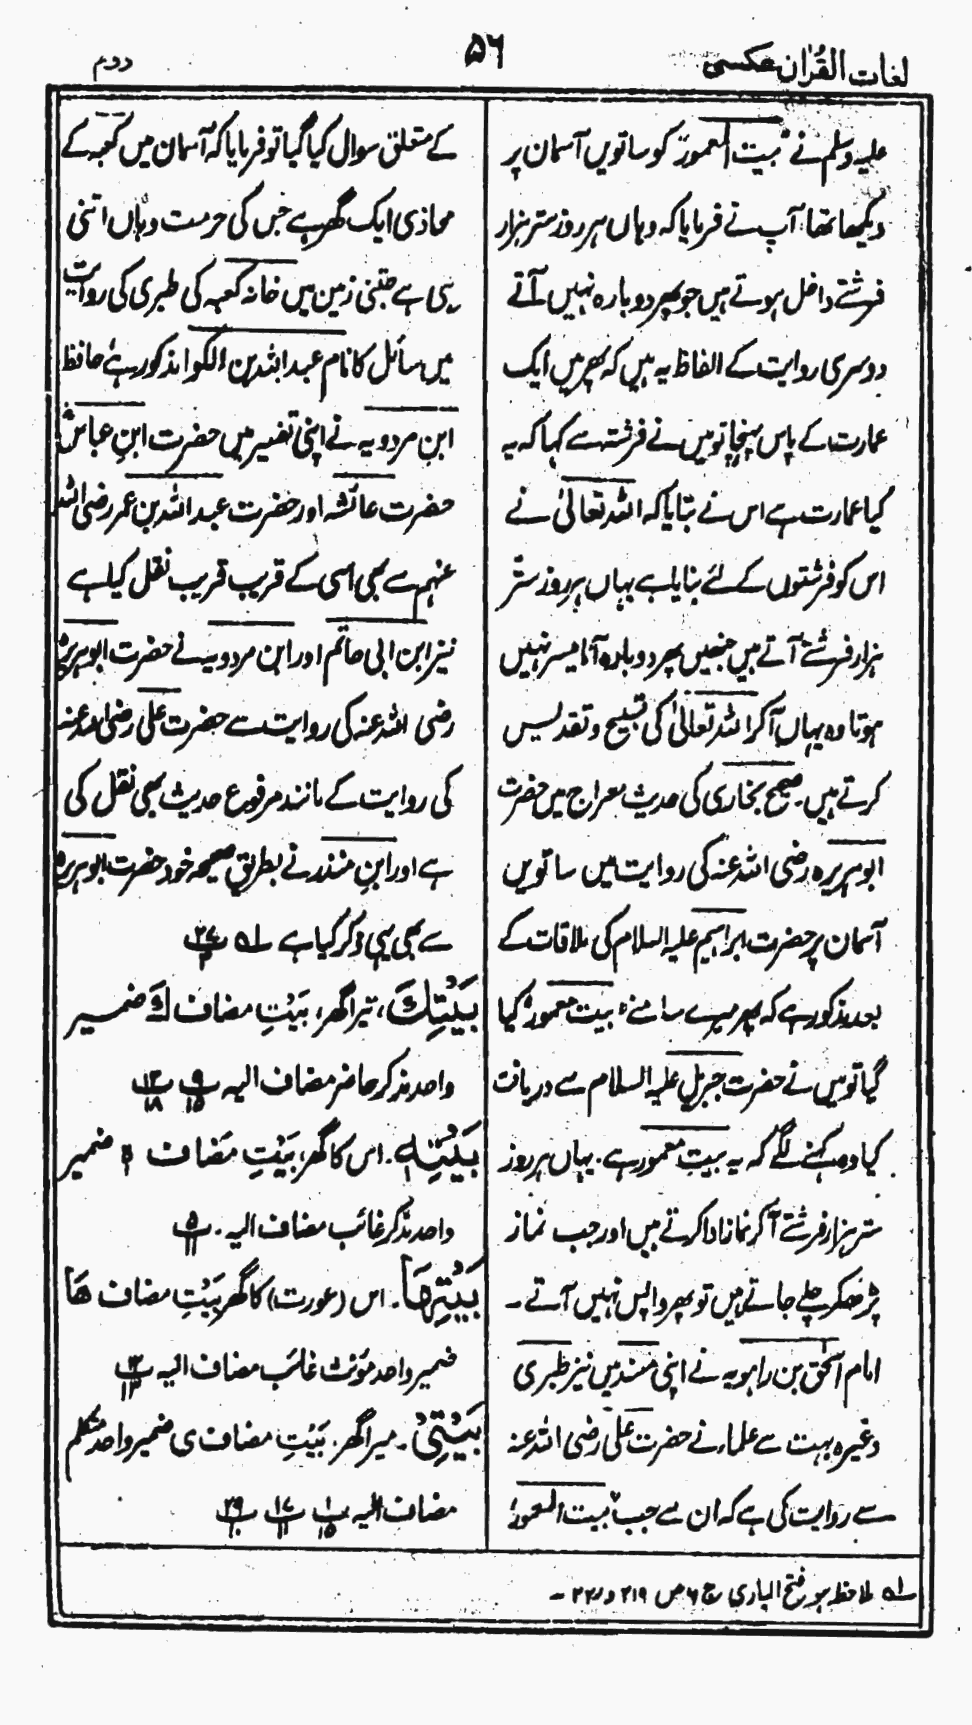 لغات القرآن عکسی
۵۶
دوم
علیہ وسلم نے "بیت المعمور" کو ساتویں آسمان پر
دیکھا تھا۔ آپ نے فرمایا کہ وہاں ہر روز ستر ہزار
فرشتے داخل ہوتے ہیں جو پھر دوبارہ نہیں آتے
دوسری روایت کے الفاظ یہ ہیں کہ پھر میں ایک
عمارت کے پاس پہنچا تو میں نے فرشتہ سے کہا کہ یہ
کیا عمارت ہے اس نے بتایا کہ اللہ تعالیٰ نے
اس کو فرشتوں کے لئے بنایا ہے یہاں ہر روز ستّر
ہزار فرشتے آتے ہیں جنھیں پھر دوبارہ آنا میسر نہیں
ہوتا وہ یہاں آکر اللہ تعالیٰ کی تسبیح و تقدیس
کرتے ہیں۔ صحیح بخاری کی حدیث معراج میں حضرت
ابوہریرہ رضی اللہ عنہ کی روایت میں ساتویں
آسمان پر حضرت ابراہیم علیہ السلام کی ملاقات کے
بعد مذکور ہے کہ پھر میرے سامنے "بیت معمور" کیا
گیا تو میں نے حضرت جبریل علیہ السلام سے دریافت
کیا وہ کہنے لگے کہ یہ بیت معمور ہے۔ یہاں ہر روز
ستر ہزار فرشتے آکر نماز ادا کرتے ہیں اور جب نماز
پڑھکر چلے جاتے ہیں تو پھر واپس نہیں آتے۔
امام اسحٰق بن راہویہ نے اپنی مسند میں نیز طبری
وغیرہ بہت سے علماء نے حضرت علی رضی اللہ عنہ
سے روایت کی ہے کہ ان سے جب "بیت المعمور"
کے متعلق سوال کیا گیا تو فرمایا کہ آسمان میں کعبہ کے
محاذی ایک گھر ہے جس کی حرمت وہاں اتنی
ہی ہے جتنی زمین میں خانہ کعبہ کی طبری کی روایت
میں سائل کا نام عبداللہ بن الکوا مذکور ہے حافظ
ابن مردویہ نے اپنی تفسیر میں حضرت ابن عباسؓ
حضرت عائشہ اور حضرت عبداللہ بن عمر رضی اللہ
عنہم سے بھی اسی کے قریب قریب نقل کیا ہے
نیز ابن ابی حاتم اور ابن مردویہ نے حضرت ابوہریرہؓ
رضی اللہ عنہ کی روایت سے حضرت علی رضی اللہ عنہ
کی روایت کے مانند مرفوع حدیث بھی نقل کی
ہے اور ابن منذر نے بطریق صحیحہ خود حضرت ابوہریرہ
سے بھی یہی ذکر کیا ہے لہ پ ۲۷
بَیْتِكَ، تیرا گھر، بَیْتِ مضاف كَ ضمیر
واحد مذکر حاضر مضاف الیہ پ ۹ ۱۵ پ ۱۳ ۱۸
بَیْتِہٖ۔ اس کا گھر، بَیْتِ مَضاف ہٖ ضمیر
واحد مذکر غائب مضاف الیہ۔ پ ۵ ۱۱
بَیْتِهَا۔ اس (عورت) کا گھر بَیْتِ مضاف هَا
ضمیر واحد مؤنث غائب مضاف الیہ پ ۱۲ ۱۳
بَیْتِیَ۔ میرا گھر۔ بَیْتِ مضاف ی ضمیر واحد متکلم
مضاف الیہ پ ۱ ۱۵ پ ۱۷ ۱۱ پ ۲۹ ۱۰
لہ ملاحظہ ہو فتح الباری ج ۶ ص ۲۱۹ و ۲۲۰۔